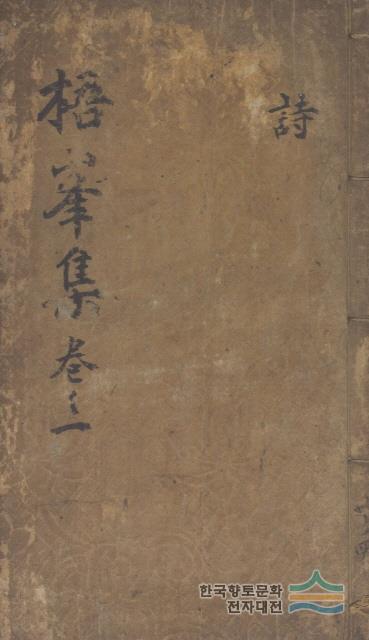 詩
梧峯集 卷之一
한국향토문화
전자대전